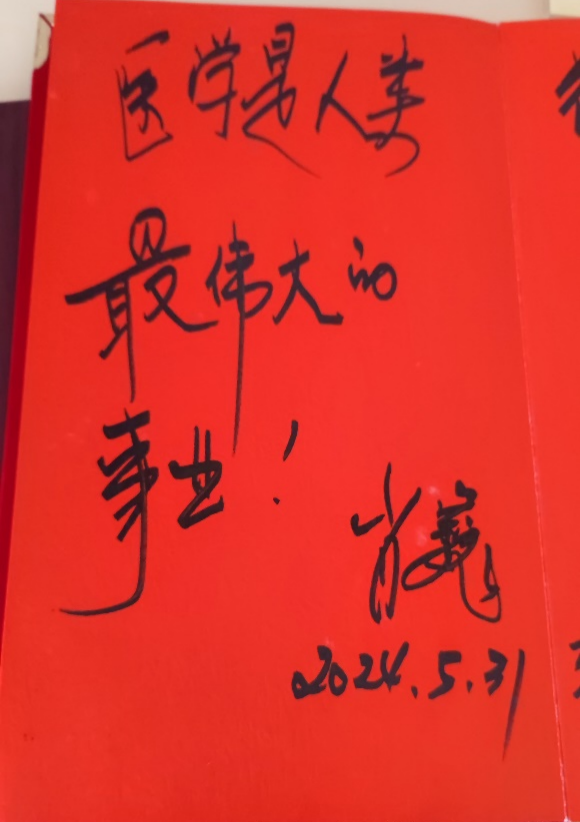 医学是人类
最伟大的
事业！
肖巍
2024.5.31